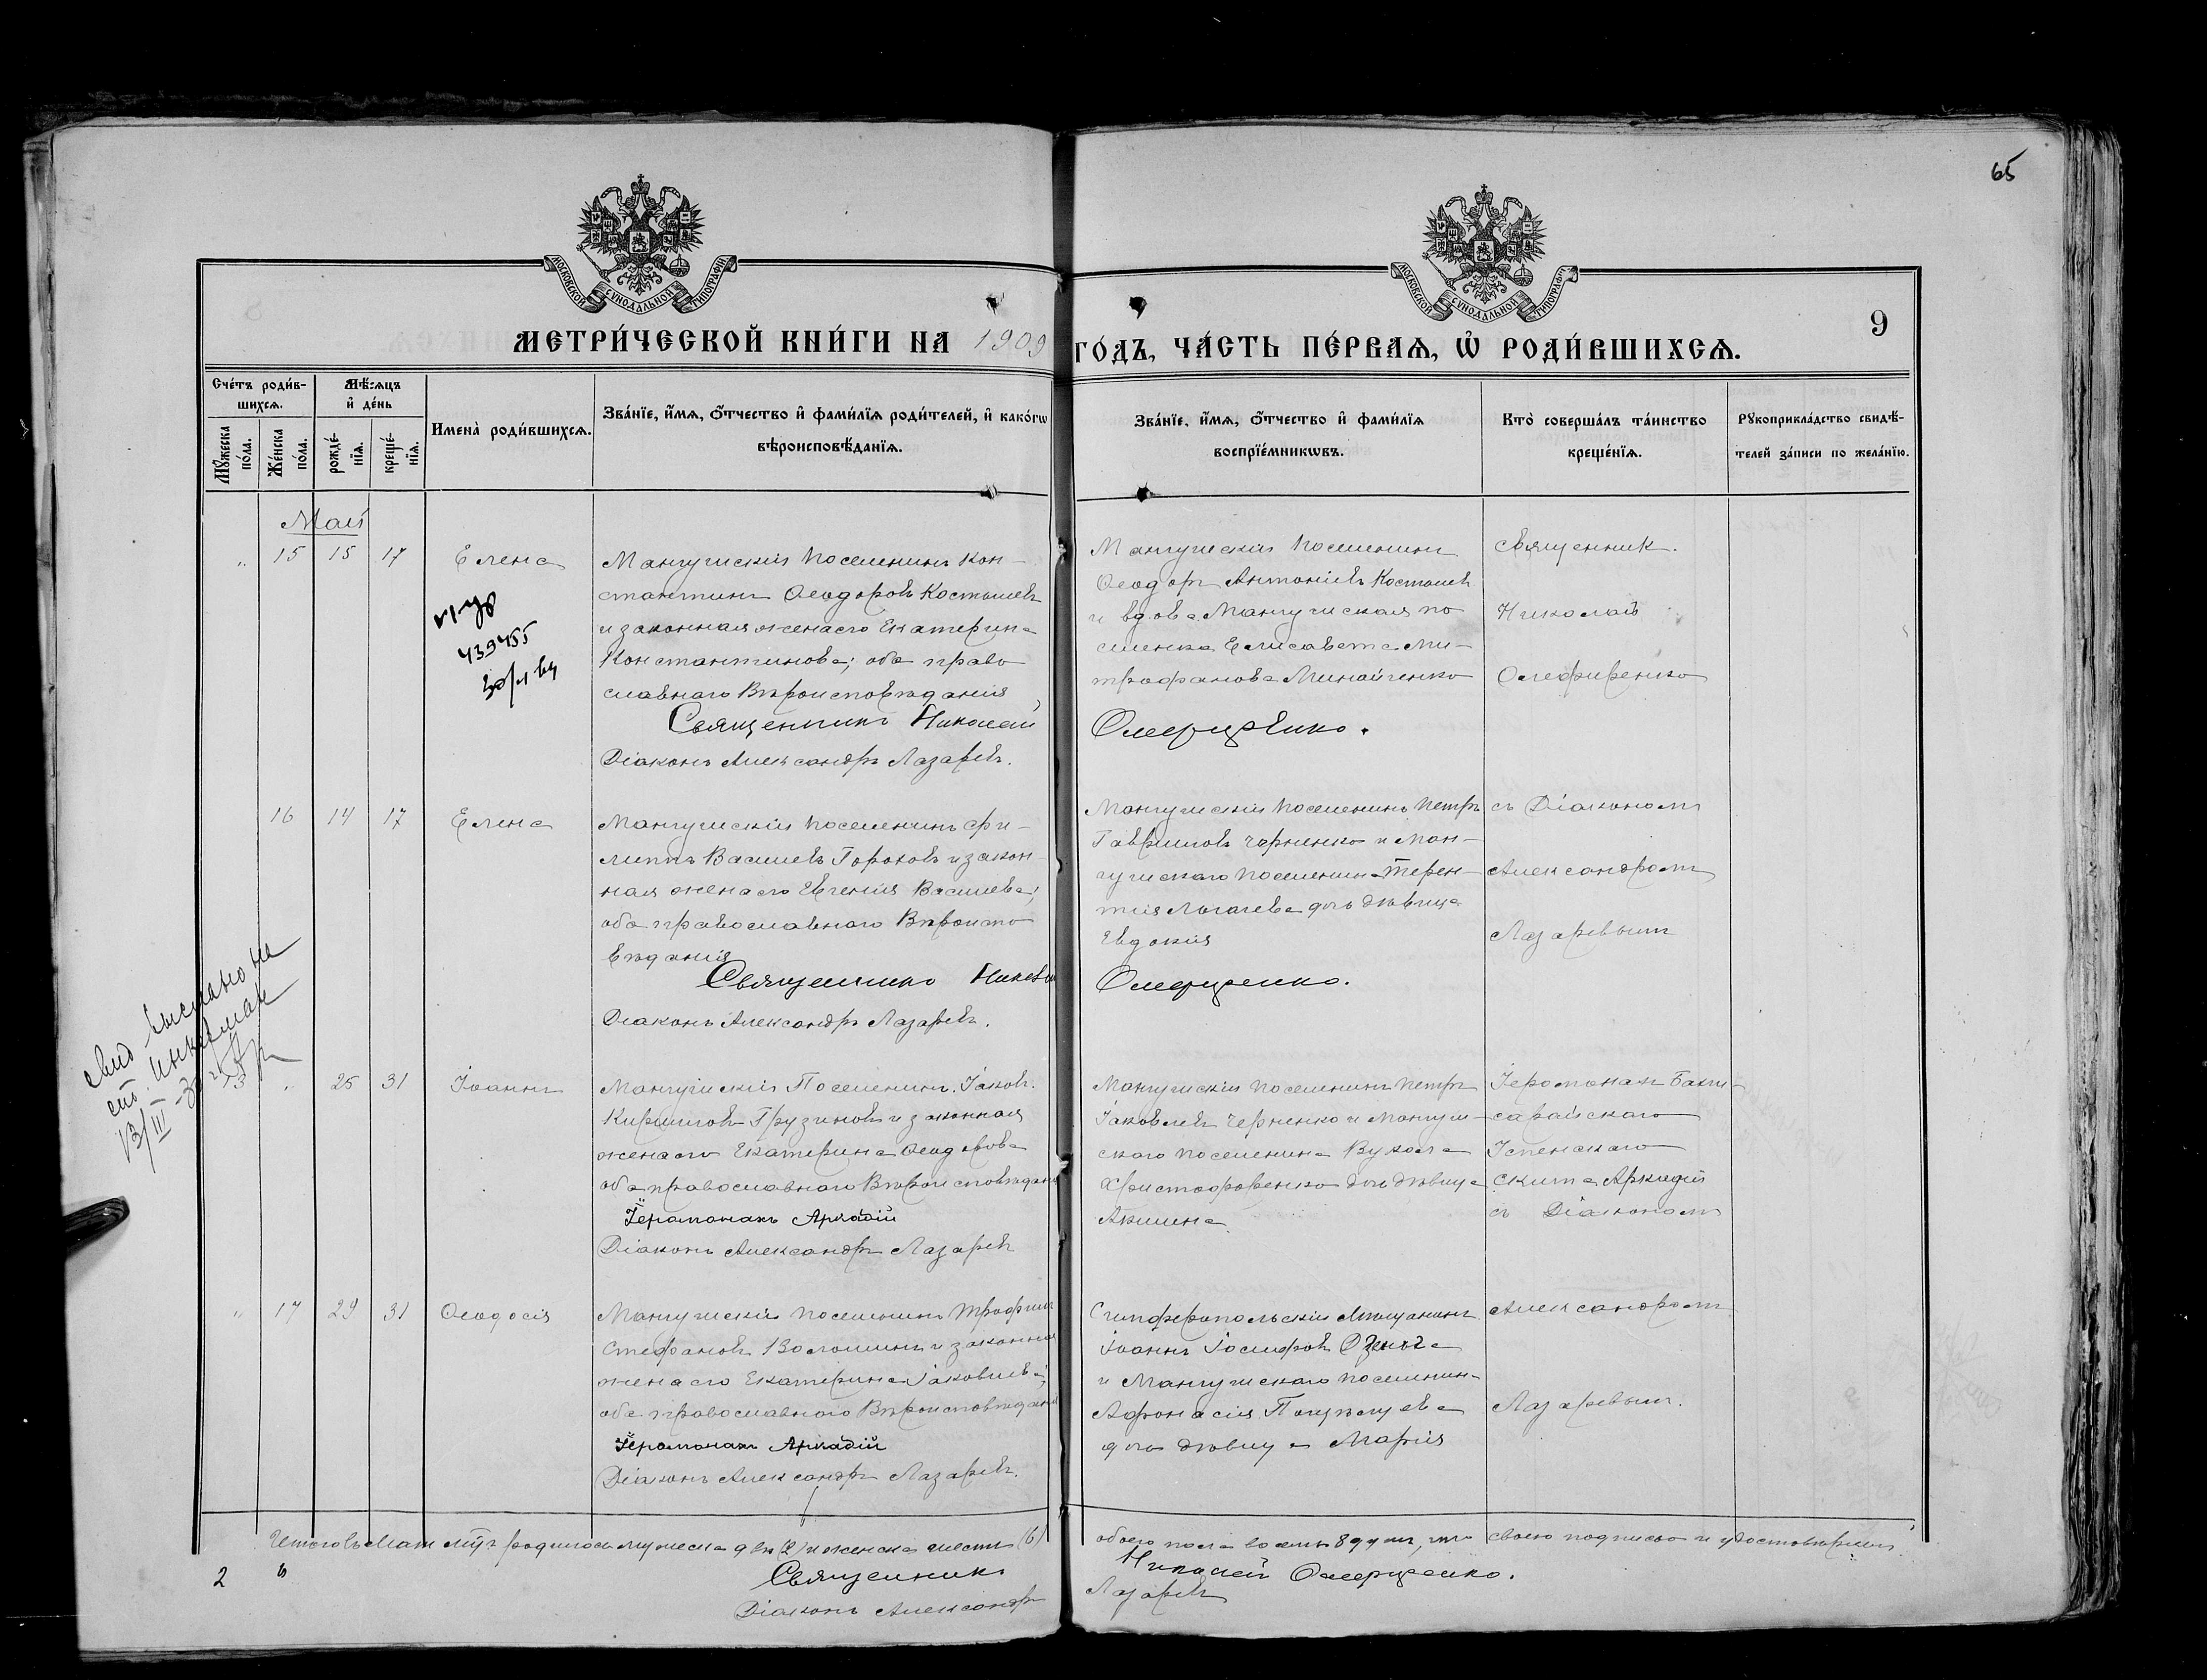 65
МОСКОВСКОЙ СУНОДАЛЬНОЙ ТИПОГРАФІИ
МОСКОВСКОЙ СУНОДАЛЬНОЙ ТИПОГРАФІИ
9
МЕТРИ́ЧЕСКОЙ КНИ́ГИ НА 1909 ГО́ДЪ, ЧА́СТЬ ПЕ́РВАѦ, Ѡ҆ РОДИ́ВШИХСѦ.
Сче́тъ роди́в-
шихсѧ.
Мѣ́сѧцъ
и҆ де́нь
Имена̀ роди́вшихсѧ.
Зва́нїе, и҆́мѧ, ѻ҆́тчество и҆ фами́лїѧ роди́телей, и҆ како́гѡ
вѣроисповѣ́данїѧ.
Мꙋ́жеска по́ла.
Же́нска по́ла.
рожде́-нїѧ.
креще́-нїѧ.
Зва́нїе, и҆́мѧ, ѻ҆́тчество и҆ фами́лїѧ
воспрїе́мникѡвъ.
Кто̀ соверша́лъ та́инство
креще́нїѧ.
Рꙋкоприкла́дство свидѣ́-
телей за́писи по жела́нїю.
Май
" 15 15 17 Елена
Мангушскій поселенинъ Кон-
стантинъ Ѳеодоровъ Костылевъ
и законная жена его Екатерина
Константинова; оба право
славнаго Вѣроисповѣданія
Священникъ Николай
Діаконъ Александръ Лазаревъ.
439455
Мангушскій поселенинъ
Ѳеодоръ Антоніевъ Костылев
и вдова Мангушская по
селенка Елисавета Ми-
трофанова Минайченко
Олефиренко.
Священник.
Николай
Олефиренко
16 14 17 Елена
Мангушскій поселенинъ Фи-
липпъ Васильевъ Гороховъ и закон-
ная жена его Евгенія Васильева;
оба православнаго Вѣроиспо
вѣданія
Священникъ Николай
Діаконъ Александръ Лазаревъ.
Мангушскій поселенинъ Петръ
Гавриловъ Чорненко и Ман-
гушскаго поселенина Терен-
тія Лыгачева дочь дѣвица
Евдокія
Олефиренко.
съ Діакономъ
Александромъ
Лазаревымъ
выслано на
ст. Инкерман
13 " 25 31 Іоаннъ
Мангушскій Поселенинъ Іаковъ
Кириловъ Грузиновъ и законная
жена его Екатерина Ѳеодорова
оба православнаго Вѣроисповѣданія
Іеромонахъ Аркадій
Діаконъ Александръ Лазаревъ
Мангушскій поселенинъ Петръ
Іаковлевъ Черненко и Мангуш-
скаго поселенина Вукола
Христофоренко дочь дѣвица
Акилина
Іеромонахъ Бахчи-
сарайскаго
Успенскаго
Скита Аркадій
съ Діакономъ
" 17 29 31 Ѳеодосія
Мангушскій поселенинъ Трофимъ
Стефановъ Волошинъ и законная
жена его Екатерина Іаковлева;
оба православнаго Вѣроисповѣданія
Іеромонахъ Аркадій
Діаконъ Александръ Лазаревъ.
Симферопольскій Мѣщанинъ
Іоаннъ Іосифовъ
и Мангушскаго поселенина
Афонасія
дочь дѣвица Марія
Александромъ
Лазаревымъ.
Итого въ Маѣ м-цѣ родилось мужеска два (2) и женска шесть (6)
обоего пола восемь 8 душ, что своею подписью и удостовѣряемъ
2 6
Священникъ Николай Олефиренко.
Діаконъ Александръ Лазаревъ